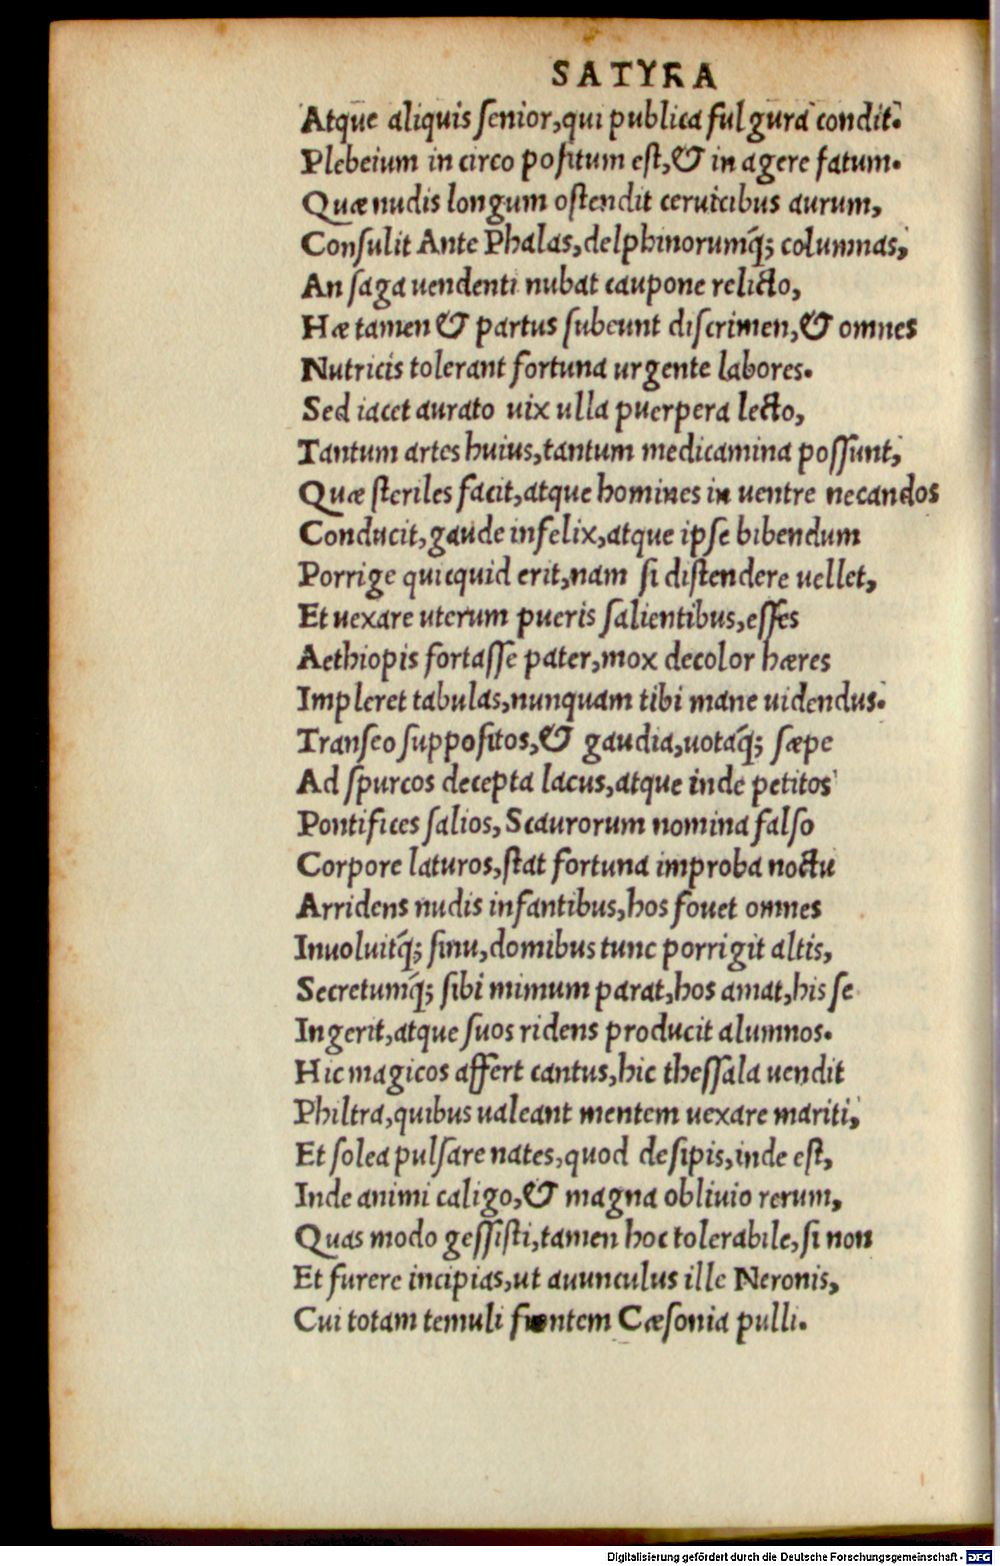 SATYRA
Atque aliquis ſenior,qui publica fulgura condit.
Plebeium in circo poſitum eſt,& in agere fatum.
Quæ nudis longum oſtendit ceruicibus aurum,
Conſulit Ante Phalas,delphinorumq́; columnas,
An ſaga uendenti nubat caupone relicto,
Hæ tamen & partus ſubeunt diſcrimen,& omnes
Nutricis tolerant fortuna urgente labores.
Sed iacet aurato uix ulla puerpera lecto,
Tantum artes huius,tantum medicamina poſſunt,
Quæ ſteriles facit,atque homines in uentre necandos
Conducit,gaude infelix,atque ipſe bibendum
Porrige quicquid erit,nam ſi diſtendere uellet,
Et uexare uterum pueris ſalientibus,eſſes
Aethiopis fortaſſe pater,mox decolor hæres
Impleret tabulas,nunquam tibi mane uidendus.
Tranſeo ſuppoſitos,& gaudia,uotaq́; ſæpe
Ad ſpurcos decepta lacus,atque inde petitos
Pontifices ſalios,Scaurorum nomina falſo
Corpore laturos,ſtat fortuna improba noctu
Arridens nudis infantibus,hos fouet omnes
Inuoluitq́; ſinu,domibus tunc porrigit altis,
Secretumq́; ſibi mimum parat,hos amat,his ſe
Ingerit,atque ſuos ridens producit alumnos.
Hic magicos affert cantus,hic theſſala uendit
Philtra,quibus ualeant mentem uexare mariti,
Et ſolea pulſare nates,quod deſipis,inde eſt,
Inde animi caligo,& magna obliuio rerum,
Quas modo geſſiſti,tamen hoc tolerabile,ſi non
Et furere incipias,ut auunculus ille Neronis,
Cui totam temuli frontem Cæſonia pulli.
Digitalisierung gefördert durch die Deutsche Forschungsgemeinschaft - DFG